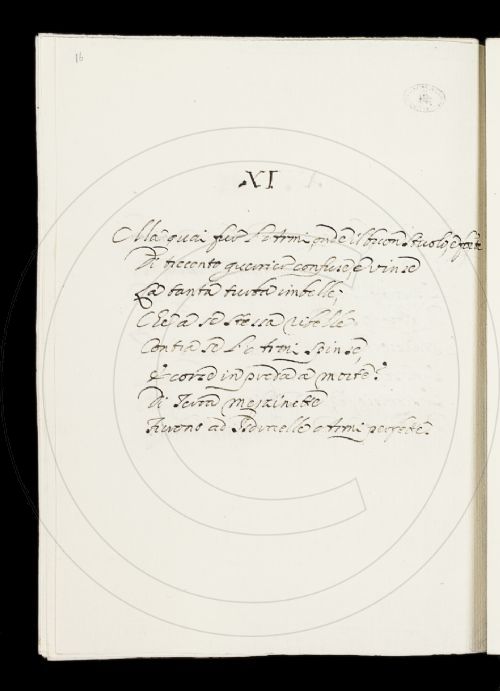 16
XI
Ma quai fur l'Armi, onde il buon stuolo, e forte
Di trecento guerrier confuse, e vinse
La tanta turba imbelle;
Che a se stessa ribelle
Contra se l'armi spinse,
E corse in preda a morte?
Di Terra mezzinette
Furono ad Isdraelle armi perfette.